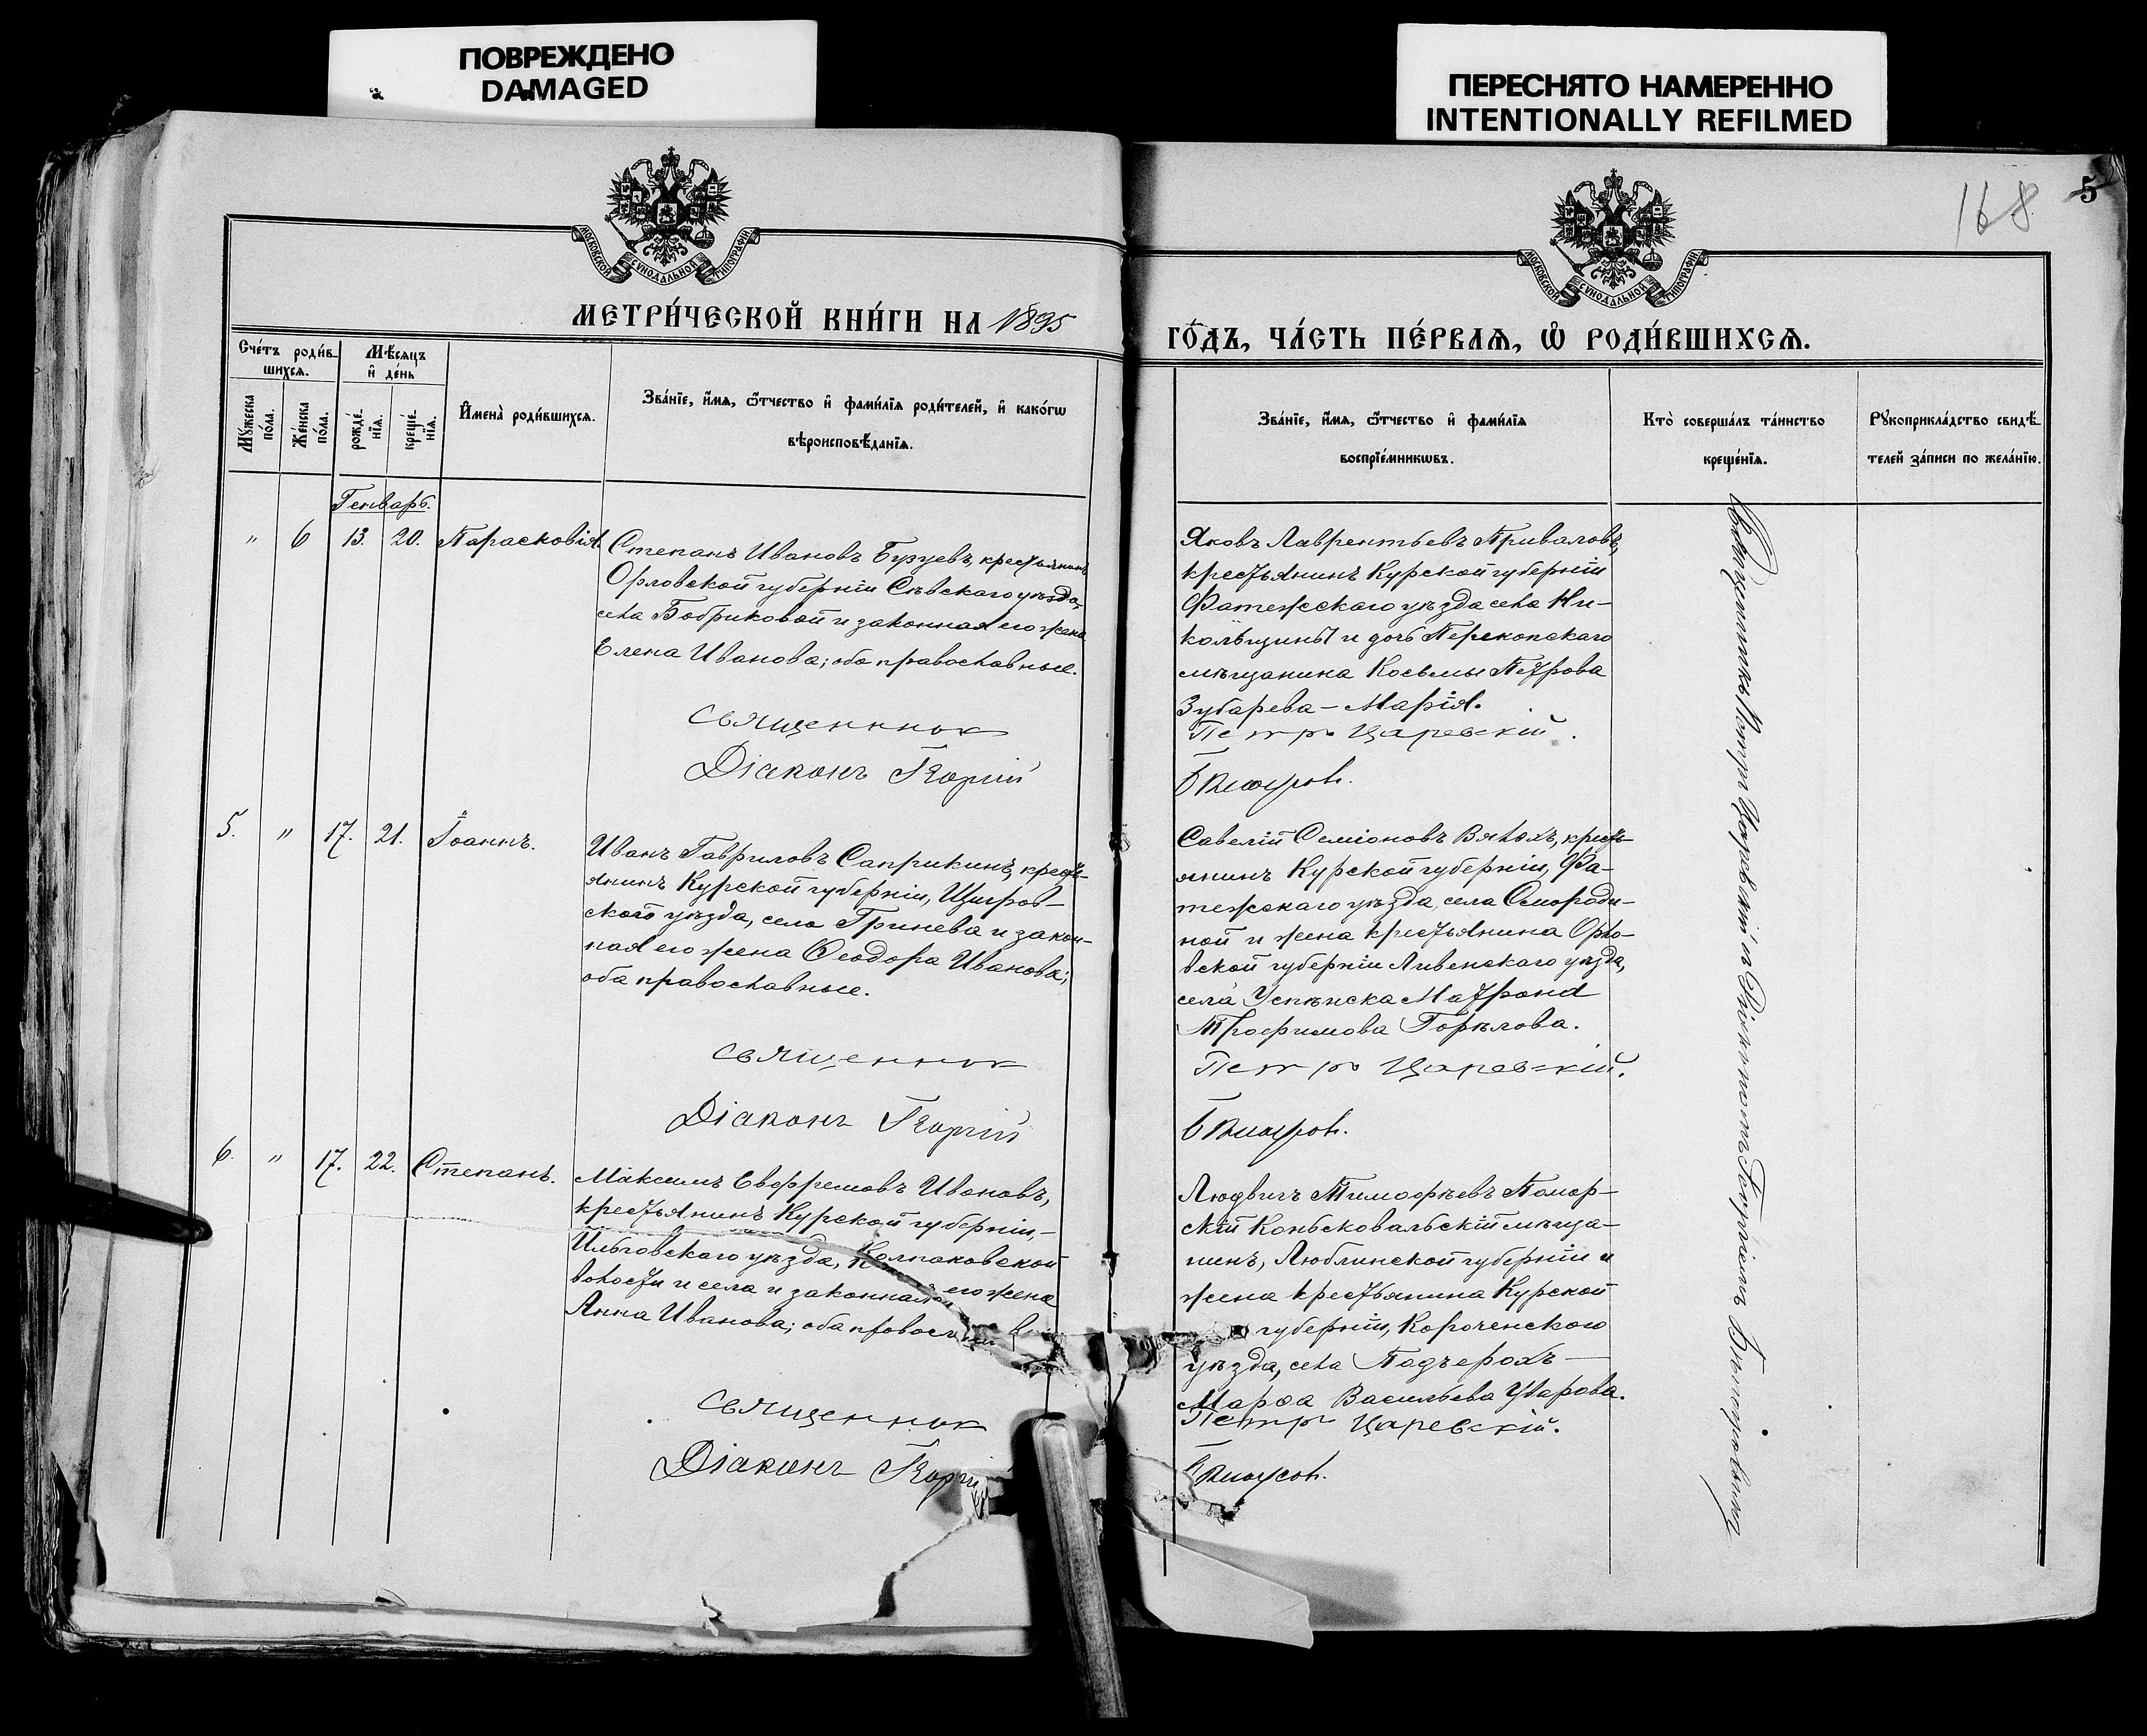 ПОВРЕЖДЕНО
DAMAGED
ПЕРЕСНЯТО НАМЕРЕННО
INTENTIONALLY REFILMED
168
5
МОСКОВСКОЙ СУНОДАЛЬНОЙ ТИПОГРАФІИ
МОСКОВСКОЙ СУНОДАЛЬНОЙ ТИПОГРАФІИ
МЕТРИ́ЧЕСКОЙ КНИ́ГИ НА 1895
ГО́ДЪ, ЧА́СТЬ ПЕ́РВАѦ, Ѡ҆ РОДИ́ВШИХСѦ.
Сче́тъ роди́в-
шихсѧ.
Мѣ́сѧцъ
и҆ де́нь
Мꙋ́жеска
по́ла.
Же́нска
по́ла.
рожде́-
нїѧ.
креще́-
нїѧ.
И҆мена̀ роди́вшихсѧ.
Зва́нїе, и҆́мѧ, ѻ҆́тчество и҆ фами́лїѧ роди́телей, и҆ како́гѡ
вѣроисповѣ́данїѧ.
Зва́нїе, и҆́мѧ, ѻ҆́тчество и҆ фами́лїѧ
воспрїе́мникѡвъ.
Кто̀ соверша́лъ та́инство
креще́нїѧ.
Рꙋкоприкла́дство свидѣ́-
телей за́писи по жела́нїю.
Генварь.
" 6 13. 20. Параскевія.
Степанъ Ивановъ Бурцевъ, крестьянинъ
Орловской губерніи Сѣвскаго уѣзда,
села Бобриковой и законная его жена
Елена Иванова; оба православные.
Священникъ
Діаконъ Георгій
Яковъ Лаврентьевъ Приваловъ,
крестьянинъ Курской губерніи
Фатежскаго уѣзда села Ни-
кольщины и дочь Перекопскаго
мѣщанина Косьмы Петрова
Зубарева - Марія.
Петръ Царевскій.
5. " 17. 21. Іоаннъ.
Иванъ Гавриловъ Саприкинъ, кресть-
янинъ Курской губерніи, Щигров-
скаго уѣзда, села Гринева и закон-
ная его жена Ѳеодора Иванова;
оба православные.
Священникъ
Діаконъ Георгій
Савелій Семіоновъ кресть-
янинъ Курской губерніи, Фа-
тежскаго уѣзда, села Смороди-
ной и жена крестьянина Орло-
вской губерніи Ливенскаго уѣзда,
села Успенска Матрона
Трофимова Горѣлова.
Петръ Царевскій.
6. " 17. 22. Степанъ.
Максимъ Евфремовъ Ивановъ,
крестьянинъ Курской губерніи,-
Ильговскаго уѣзда, Колпаковской
волости и села и законная его жена
Анна Иванова; оба
Священникъ
Діаконъ
Людвигъ Тимоѳѣевъ Помор-
скій Коньсковальскій мѣща-
нинъ, Люблинской губерніи и
жена крестьянина Курской
губерніи, Короченскаго
уѣзда, села
Марѳа Васильева Уварова.
Петръ Царевскій.
Священникъ Петръ Царевскій и Діаконъ Георгій